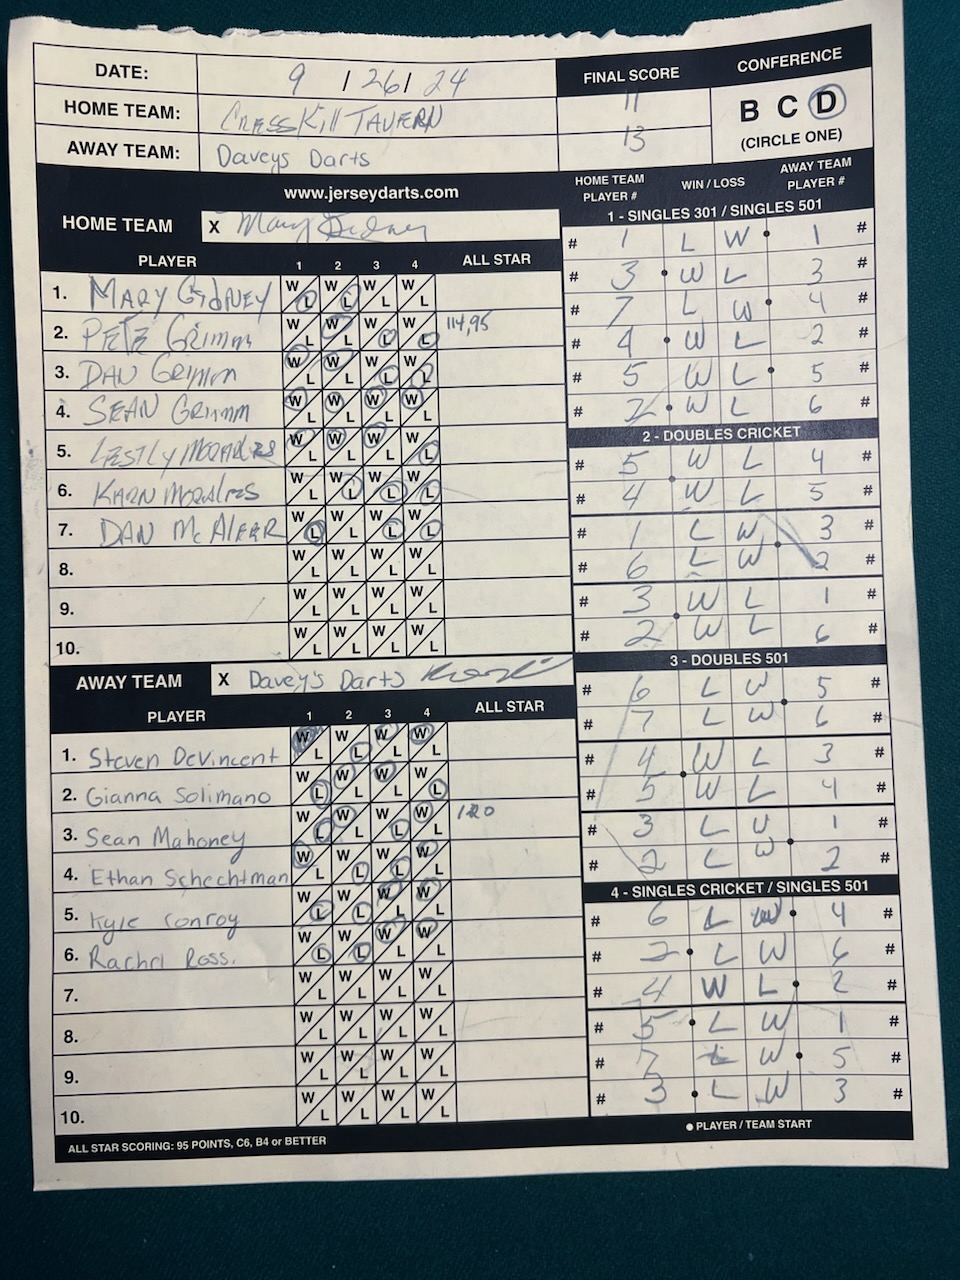 DATE: 9 / 26 / 24
FINAL SCORE
CONFERENCE
HOME TEAM: CRESSKill TAVERN
11
B C D
AWAY TEAM: Daveys Darts
13
(CIRCLE ONE)
www.jerseydarts.com
HOME TEAM X Mary Gidney
PLAYER 1 2 3 4 ALL STAR
1. MARY GidNEY W L W L W L W L
2. PETE GRimm W L W L W L W L 114,95
3. DAN GRimm W L W L W L W L
4. SEAN GRimm W L W L W L W L
5. LESTLY MORALES W L W L W L W L
6. KARN MORALES W L W L W L W L
7. DAN McALEER W L W L W L W L
8. W L W L W L W L
9. W L W L W L W L
10. W L W L W L W L
AWAY TEAM X Davey's Darts
PLAYER 1 2 3 4 ALL STAR
1. Steven DeVincent W L W L W L W L
2. Gianna Solimano W L W L W L W L
3. Sean Mahoney W L W L W L W L 120
4. Ethan Schechtman W L W L W L W L
5. Kyle Conroy W L W L W L W L
6. Rachel Ross. W L W L W L W L
7. W L W L W L W L
8. W L W L W L W L
9. W L W L W L W L
10. W L W L W L W L
ALL STAR SCORING: 95 POINTS, C6, B4 or BETTER
HOME TEAM PLAYER # WIN / LOSS AWAY TEAM PLAYER #
1 - SINGLES 301 / SINGLES 501
# 1 L W • 1 #
# 3 • W L 3 #
# 7 L W • 4 #
# 4 • W L 2 #
# 5 W L • 5 #
# 2 • W L 6 #
2 - DOUBLES CRICKET
# 5 W L 4 #
# 4 W L 5 #
# 1 L W 3 #
# 6 L W 2 #
# 3 W L 1 #
# 2 W L 6 #
3 - DOUBLES 501
# 6 L W 5 #
# 7 L W 6 #
# 4 W L 3 #
# 5 W L 4 #
# 3 L W 1 #
# 2 L W 2 #
4 - SINGLES CRICKET / SINGLES 501
# 6 L W • 4 #
# 2 • L W 6 #
# 4 W L • 2 #
# 5 • L W 1 #
# 7 L W • 5 #
# 3 • L W 3 #
• PLAYER / TEAM START